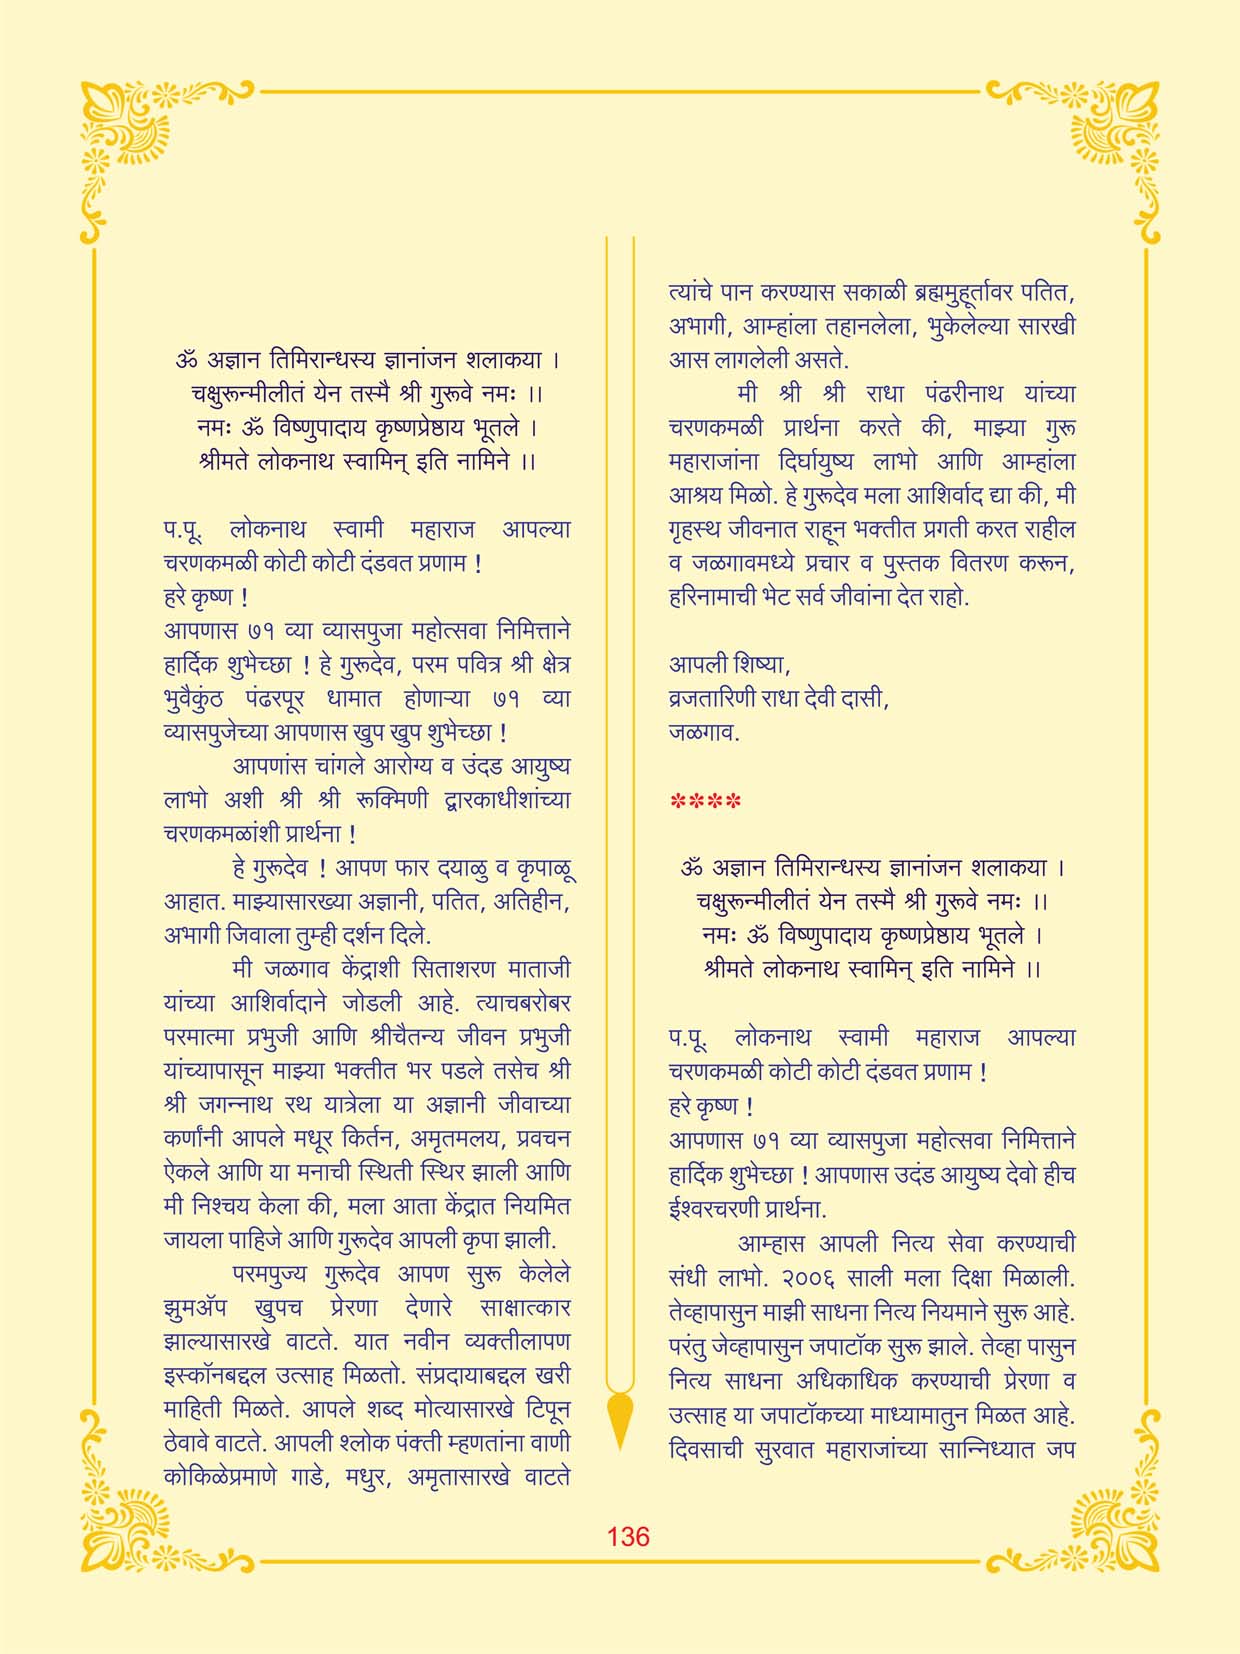 ॐ अज्ञान तिमिरान्धस्य ज्ञानांजन शलाकया ।
चक्षुरून्मीलीतं येन तस्मै श्री गुरूवे नमः ।।
नमः ॐ विष्णुपादाय कृष्णप्रेष्ठाय भूतले ।
श्रीमते लोकनाथ स्वामिन् इति नामिने ।।
प.पू. लोकनाथ स्वामी महाराज आपल्या
चरणकमळी कोटी कोटी दंडवत प्रणाम !
हरे कृष्ण !
आपणास ७१ व्या व्यासपुजा महोत्सवा निमित्ताने
हार्दिक शुभेच्छा ! हे गुरूदेव, परम पवित्र श्री क्षेत्र
भुवैकुंठ पंढरपूर धामात होणाऱ्या ७१ व्या
व्यासपुजेच्या आपणास खुप खुप शुभेच्छा !
आपणांस चांगले आरोग्य व उंदड आयुष्य
लाभो अशी श्री श्री रूक्मिणी द्वारकाधीशांच्या
चरणकमळांशी प्रार्थना !
हे गुरूदेव ! आपण फार दयाळु व कृपाळू
आहात. माझ्यासारख्या अज्ञानी, पतित, अतिहीन,
अभागी जिवाला तुम्ही दर्शन दिले.
मी जळगाव केंद्राशी सिताशरण माताजी
यांच्या आशिर्वादाने जोडली आहे. त्याचबरोबर
परमात्मा प्रभुजी आणि श्रीचैतन्य जीवन प्रभुजी
यांच्यापासून माझ्या भक्तीत भर पडले तसेच श्री
श्री जगन्नाथ रथ यात्रेला या अज्ञानी जीवाच्या
कर्णांनी आपले मधूर किर्तन, अमृतमलय, प्रवचन
ऐकले आणि या मनाची स्थिती स्थिर झाली आणि
मी निश्चय केला की, मला आता केंद्रात नियमित
जायला पाहिजे आणि गुरूदेव आपली कृपा झाली.
परमपुज्य गुरूदेव आपण सुरू केलेले
झुमॲप खुपच प्रेरणा देणारे साक्षात्कार
झाल्यासारखे वाटते. यात नवीन व्यक्तीलापण
इस्कॉनबद्दल उत्साह मिळतो. संप्रदायाबद्दल खरी
माहिती मिळते. आपले शब्द मोत्यासारखे टिपून
ठेवावे वाटते. आपली श्लोक पंक्ती म्हणतांना वाणी
कोकिळेप्रमाणे गाडे, मधुर, अमृतासारखे वाटते
त्यांचे पान करण्यास सकाळी ब्रह्ममुहूर्तावर पतित,
अभागी, आम्हांला तहानलेला, भुकेलेल्या सारखी
आस लागलेली असते.
मी श्री श्री राधा पंढरीनाथ यांच्या
चरणकमळी प्रार्थना करते की, माझ्या गुरू
महाराजांना दिर्घायुष्य लाभो आणि आम्हांला
आश्रय मिळो. हे गुरूदेव मला आशिर्वाद द्या की, मी
गृहस्थ जीवनात राहून भक्तीत प्रगती करत राहील
व जळगावमध्ये प्रचार व पुस्तक वितरण करून,
हरिनामाची भेट सर्व जीवांना देत राहो.
आपली शिष्या,
व्रजतारिणी राधा देवी दासी,
जळगाव.
****
ॐ अज्ञान तिमिरान्धस्य ज्ञानांजन शलाकया ।
चक्षुरून्मीलीतं येन तस्मै श्री गुरूवे नमः ।।
नमः ॐ विष्णुपादाय कृष्णप्रेष्ठाय भूतले ।
श्रीमते लोकनाथ स्वामिन् इति नामिने ।।
प.पू. लोकनाथ स्वामी महाराज आपल्या
चरणकमळी कोटी कोटी दंडवत प्रणाम !
हरे कृष्ण !
आपणास ७१ व्या व्यासपुजा महोत्सवा निमित्ताने
हार्दिक शुभेच्छा ! आपणास उदंड आयुष्य देवो हीच
ईश्वरचरणी प्रार्थना.
आम्हास आपली नित्य सेवा करण्याची
संधी लाभो. २००६ साली मला दिक्षा मिळाली.
तेव्हापासुन माझी साधना नित्य नियमाने सुरू आहे.
परंतु जेव्हापासुन जपाटॉक सुरू झाले. तेव्हा पासुन
नित्य साधना अधिकाधिक करण्याची प्रेरणा व
उत्साह या जपाटॉकच्या माध्यामातुन मिळत आहे.
दिवसाची सुरवात महाराजांच्या सान्निध्यात जप
136